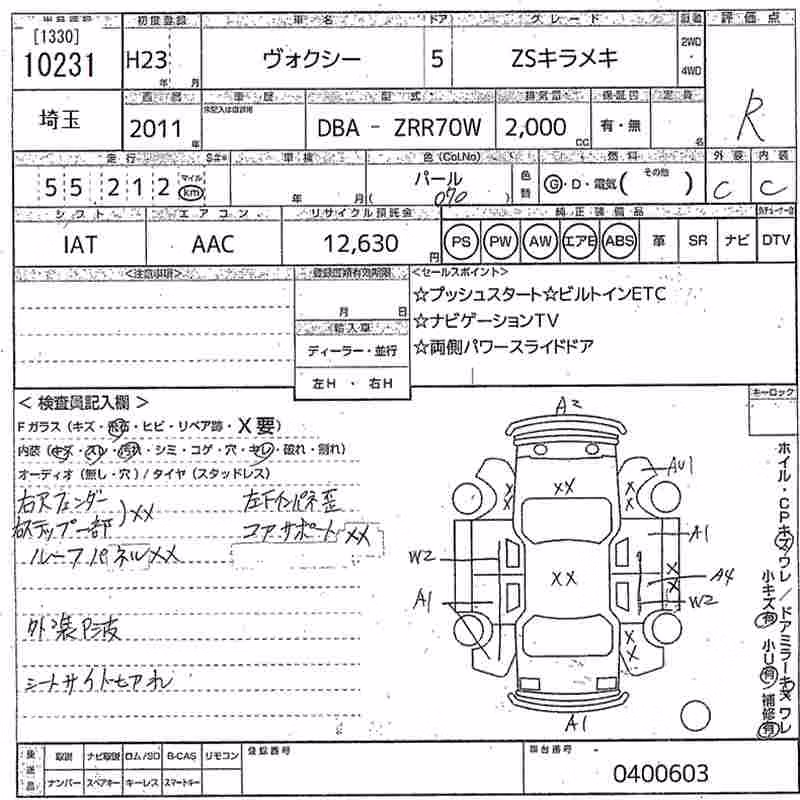 [1330]
10231
埼玉
初度登録
H23
年 月
車名
ヴォクシー
ドア
5
グレード
ZSキラメキ
2WD
・
4WD
評価点
R
2011
年
車歴
型式
DBA － ZRR70W
排気量
2,000
CC
保証書
有・無
定員
名
走行
55212
マイル
km
車検
年 月
色 (Col.No)
パール
( 070 )
色替
燃料
G・D・電気( その他 )
外装
C
内装
C
シフト
IAT
エアコン
AAC
リサイクル預託金
12,630
円
純正装備品
PS PW AW エアB ABS 革 SR ナビ DTV
<注意事項>
登録書類有効期限
月 日
輸入車
ディーラー・並行
左H ・ 右H
<セールスポイント>
☆プッシュスタート☆ビルトインETC
☆ナビゲーションTV
☆両側パワースライドドア
< 検査員記入欄 >
Fガラス (キズ・飛石・ヒビ・リペア跡・X要)
内装 (キズ・スレ・汚れ・シミ・コゲ・穴・キレ・破れ・割れ)
オーディオ (無し・穴) / タイヤ (スタッドレス)
右Rフェンダー
右ステップ一部 )XX
ルーフパネルXX
左Fインパネ歪
コアサポートXX
外装P波
キーロック
A2
XX
X
X
X
X
AU1
A1
W2
XX
X
X
A4
W2
A1
X
X
A1
ホイル・CPキズワレ / ドアミラーキズワレ
小キズ有 小U有 補修有
発送品
取説 ナビ取説 ロム/SD B-CAS リモコン
ナンバー スペアキー キーレス スマートキー
登録番号
車台番号
0400603